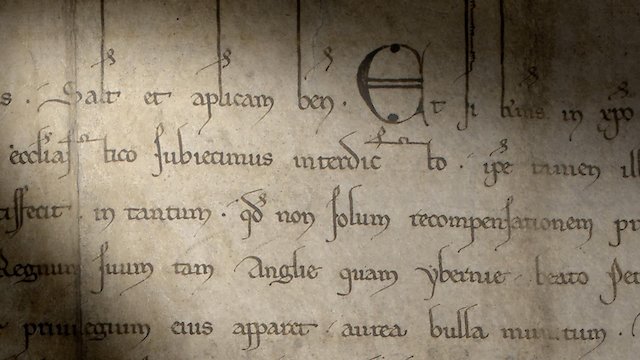 Salt et aplicam ben. Et si in xpo
eccliastico subiecimus interdicto. ipe tamen
in tantum. qd non solum recompensationem
Regnum suum tam Anglie quam ybernie beato
privilegium eius apparet aurea bulla munitum.